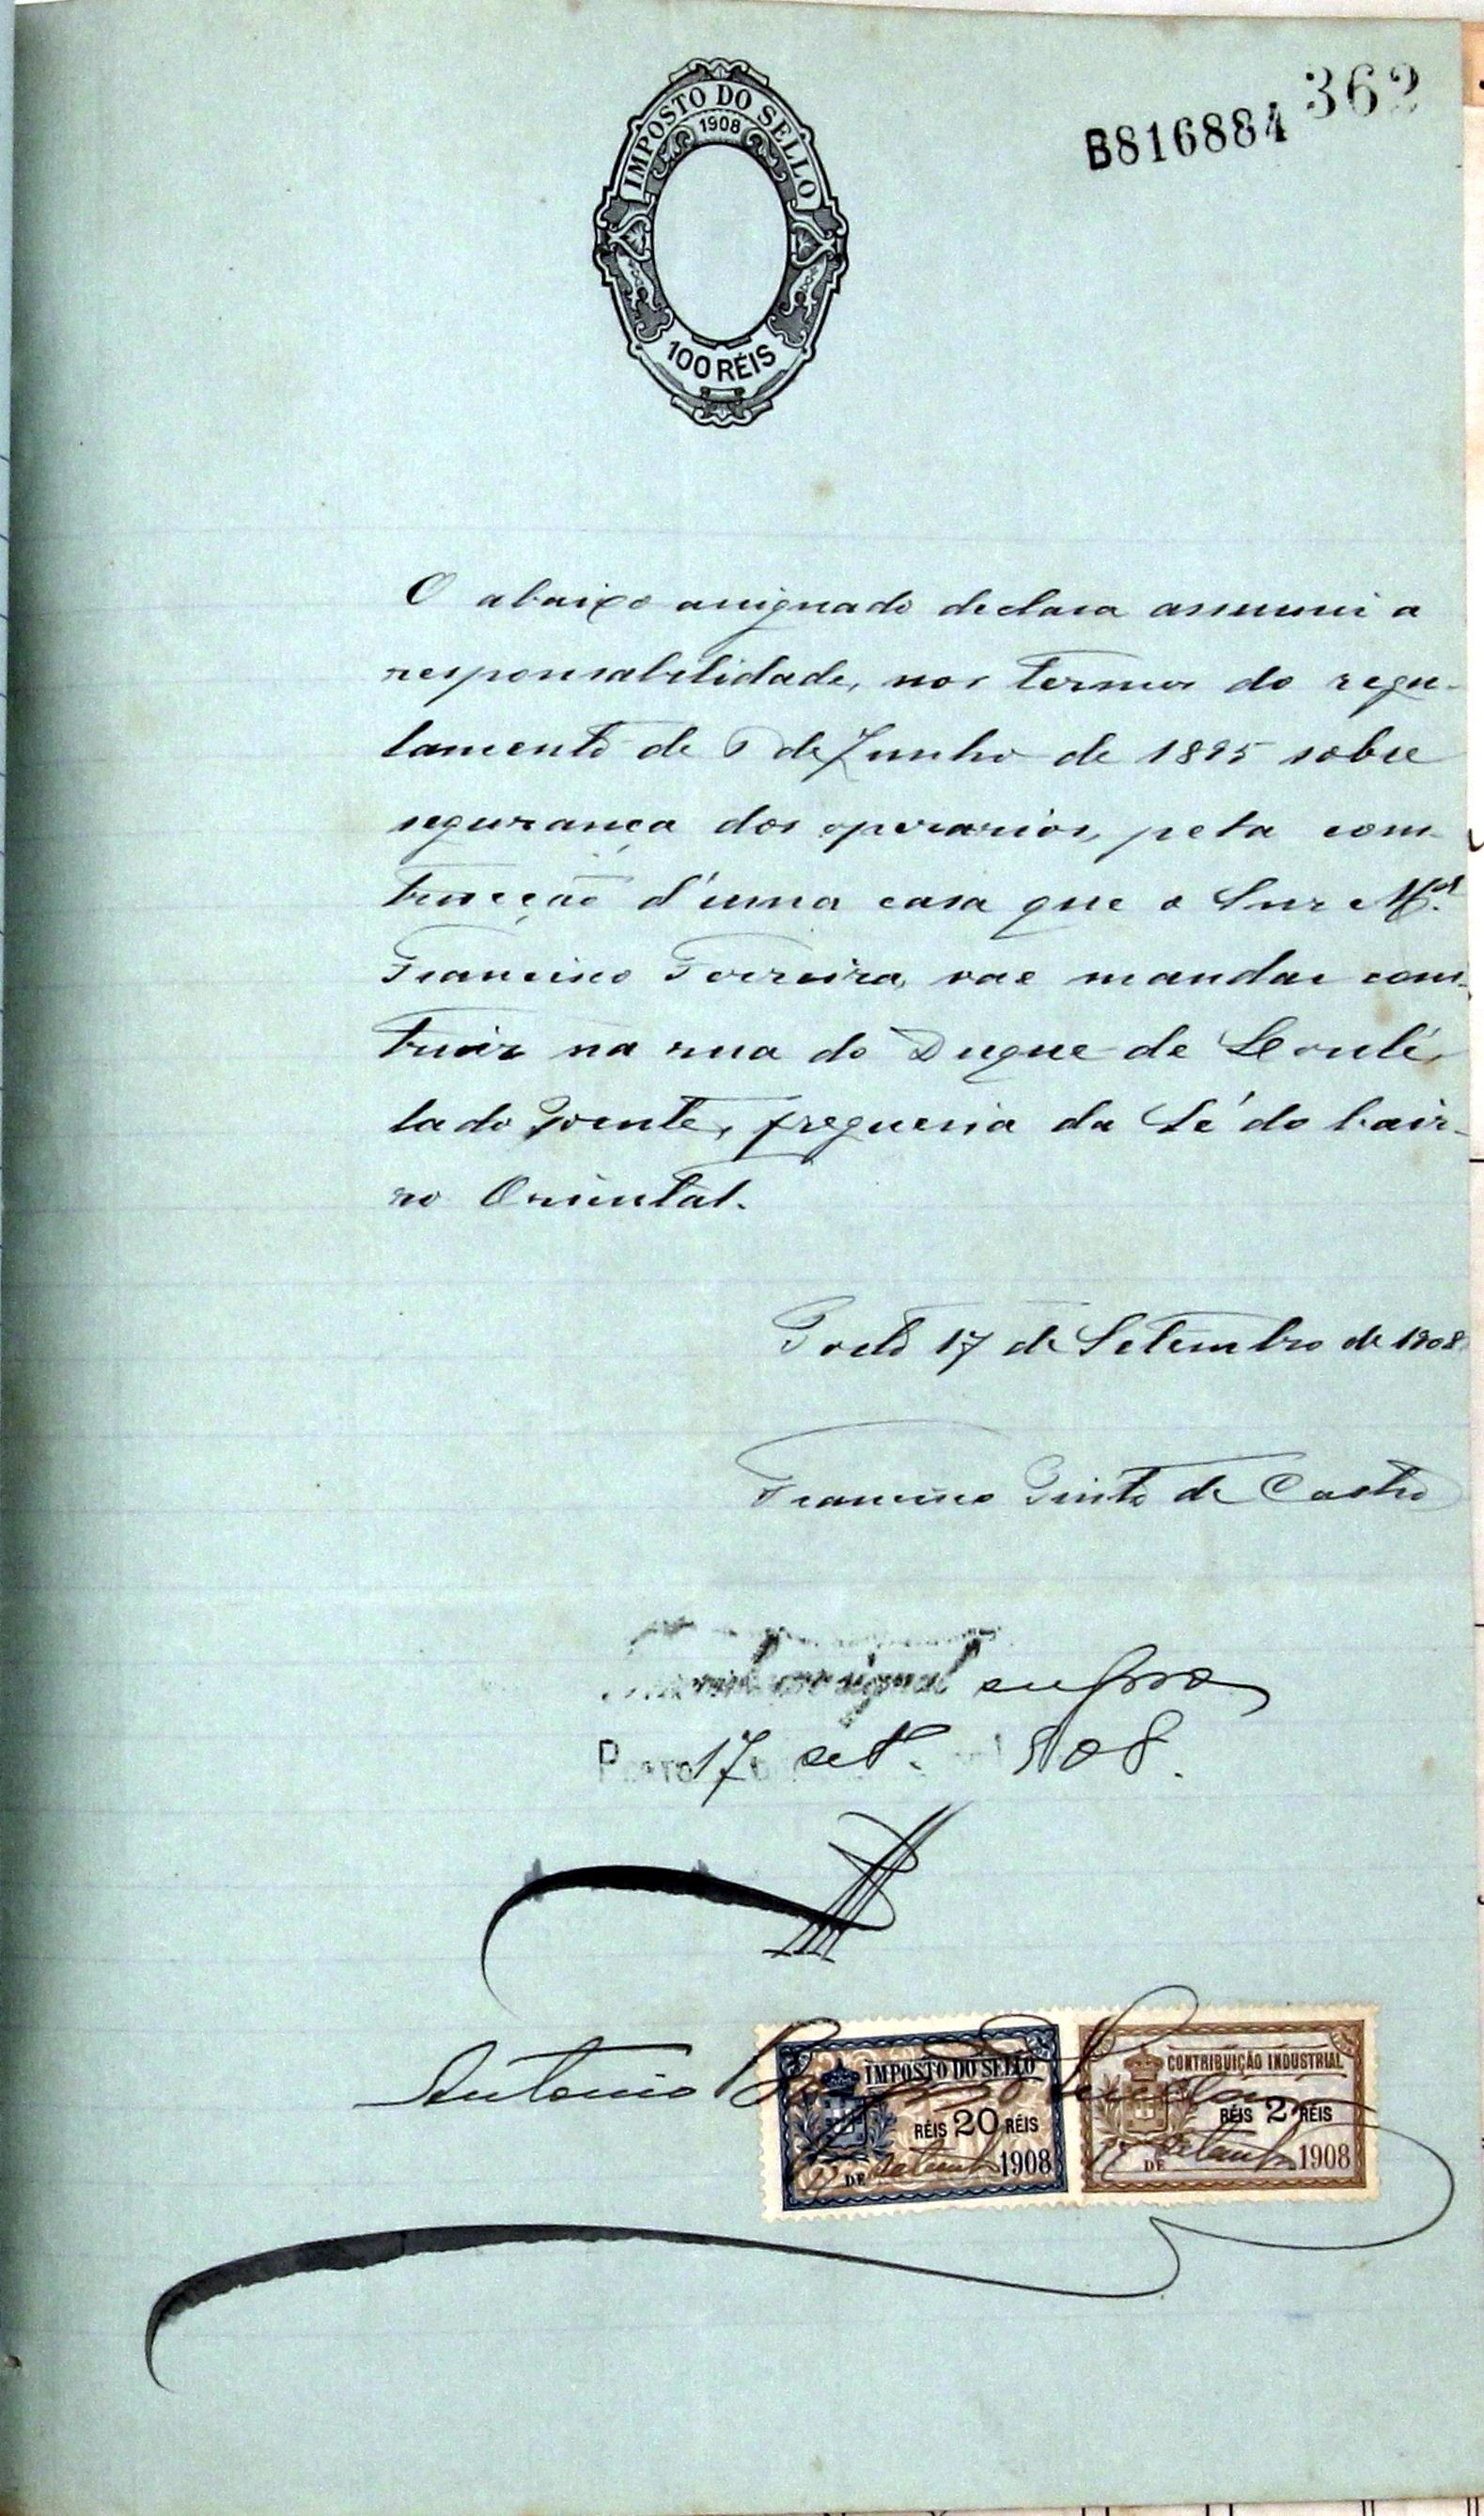 362
B816884
IMPOSTO DO SELLO
1908
100 RÉIS
O abaixo assignado declara assumir a
responsabilidade, nos termos do regu-
lamento de 6 de Junho de 1895 sobre
segurança dos operarios, pela cons-
trucção d'uma casa que o Snr M.el
Francisco Ferreira, vae mandar cons-
truir na rua do Duque de Loulé,
lado Poente, freguesia da Sé do bair-
ro Oriental.
Porto 17 de Setembro de 1908
Francisco Pinto de Castro
signal supra
Porto 17 set.º 908.
Antonio
IMPOSTO DO SELLO
RÉIS 20 RÉIS
17 DE Setembro 1908
CONTRIBUIÇÃO INDUSTRIAL
RÉIS 2 RÉIS
17 DE Setembro 1908